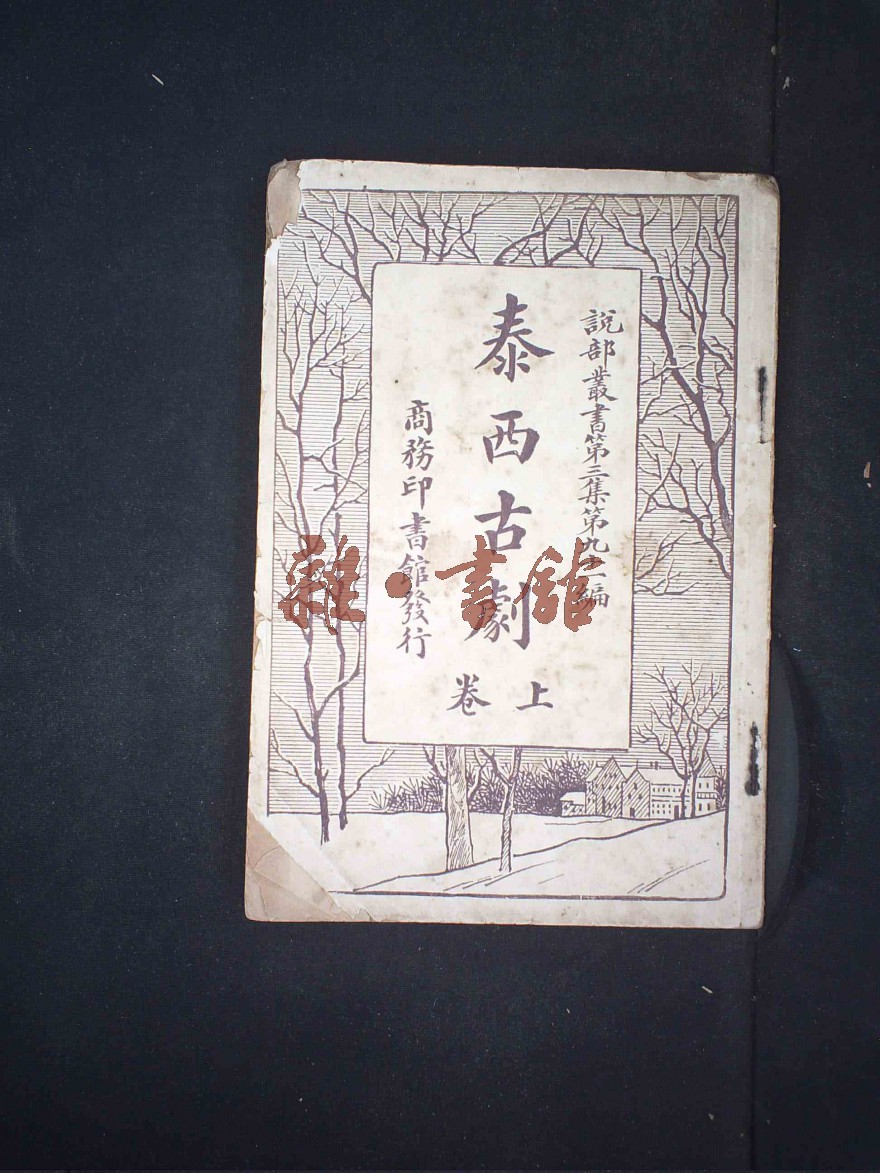 說部叢書第三集第九十一編
泰西古劇
上卷
商務印書館發行
雜·書館